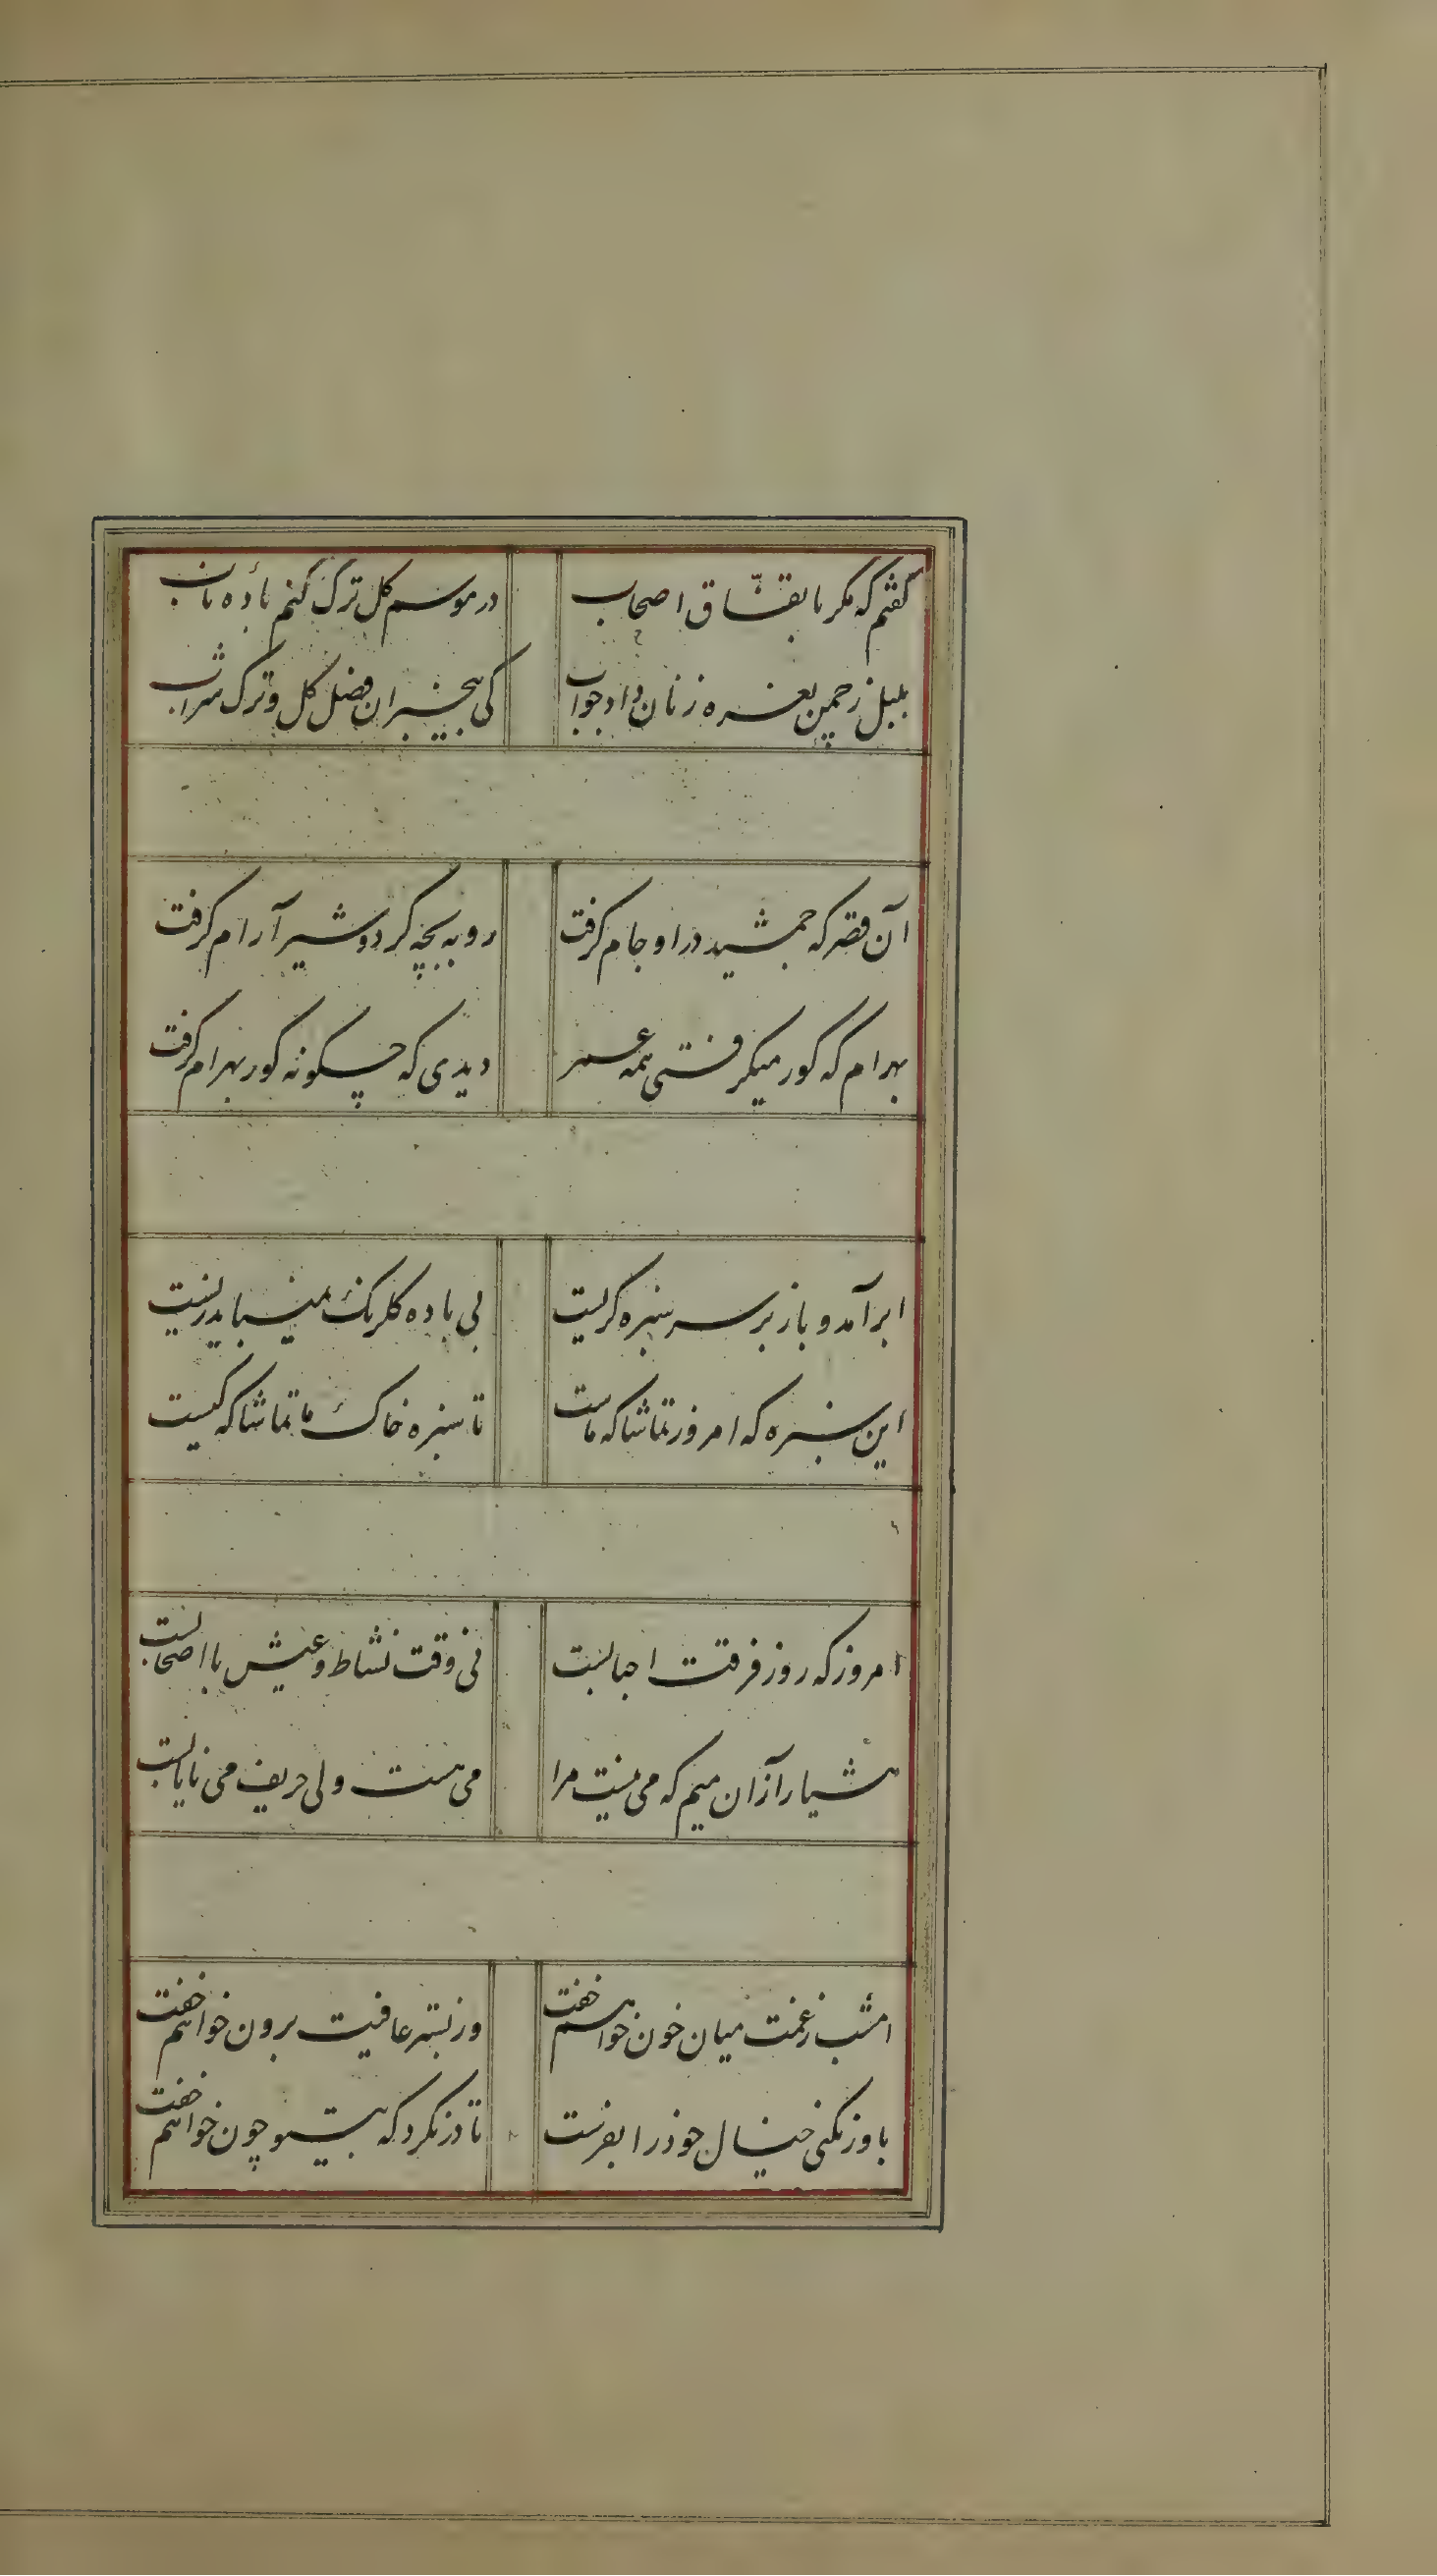 کفتم که مکر باتفاق اصحاب
در موسم کل ترک کنم بادهٔ ناب
بلبل ز چمن نعره زنان داد جواب
کی بیخبران فضل کل و ترک شراب
آن قصر که جمشید در او جام کرفت
روبه بچه کرد و شیر آرام کرفت
بهرام که کور میکرفتی همه عمر
دیدی که چکونه کور بهرام کرفت
ابر آمد و باز بر سر سبزه کریست
بی بادهٔ کلرنک نمیباید زیست
این سبزه که امروز تماشاکه ماست
تا سبزهٔ خاک ما تماشاکه کیست
امروز که روز فرقت احبابست
نی وقت نشاط و عیش با اصحابست
هشیار از آن میم که می نیست مرا
می هست ولی حریف می نایابست
امشب ز غمت میان خون خواهم خفت
وز بستر عافیت برون خواهم خفت
باور نکنی خیال خود را بفرست
تا در نکرد که بیتو چون خواهم خفت